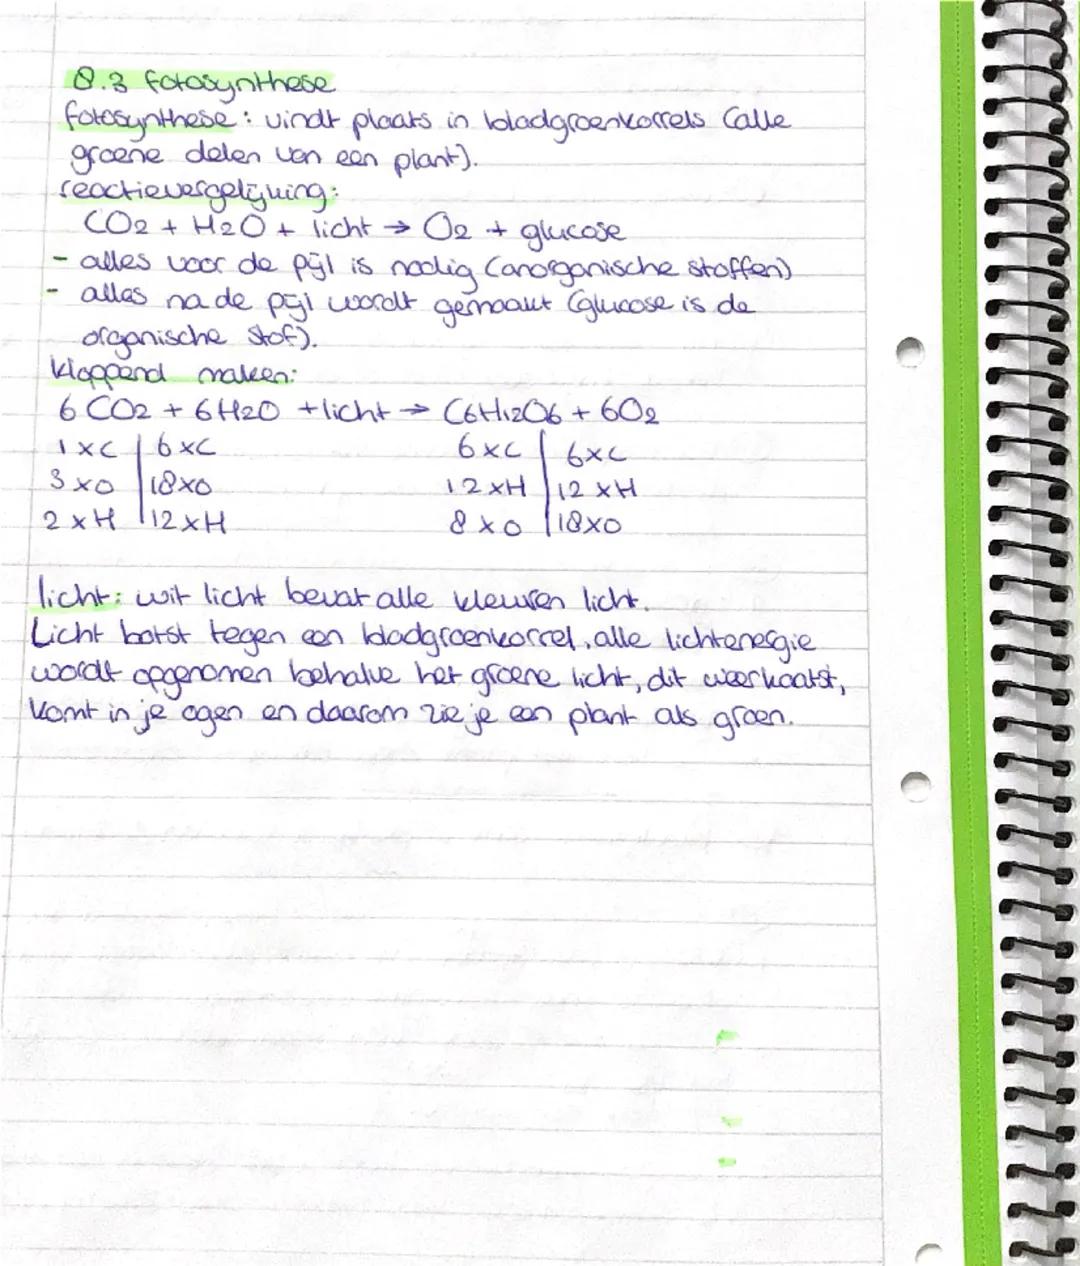 8.3 fotosynthese
fotosynthese: vindt plaats in bladgroenkorrels (alle
groene delen van een plant).
reactievergelijking:
CO2 + H2O + licht → O2 + glucose
- alles voor de pijl is nodig (anorganische stoffen)
- alles na de pijl wordt gemaakt (glucose is de
organische stof).
kloppend maken:
6 CO2 + 6H2O + licht → C6H12O6 + 6O2
1 x C | 6 x C 6 x C | 6 x C
3 x O | 18 x O 12 x H | 12 x H
2 x H | 12 x H 8 x O | 18 x O
licht: wit licht bevat alle kleuren licht.
Licht botst tegen een bladgroenkorrel, alle lichtenergie
wordt opgenomen behalve het groene licht, dit weerkaatst,
komt in je ogen en daarom zie je een plant als groen.